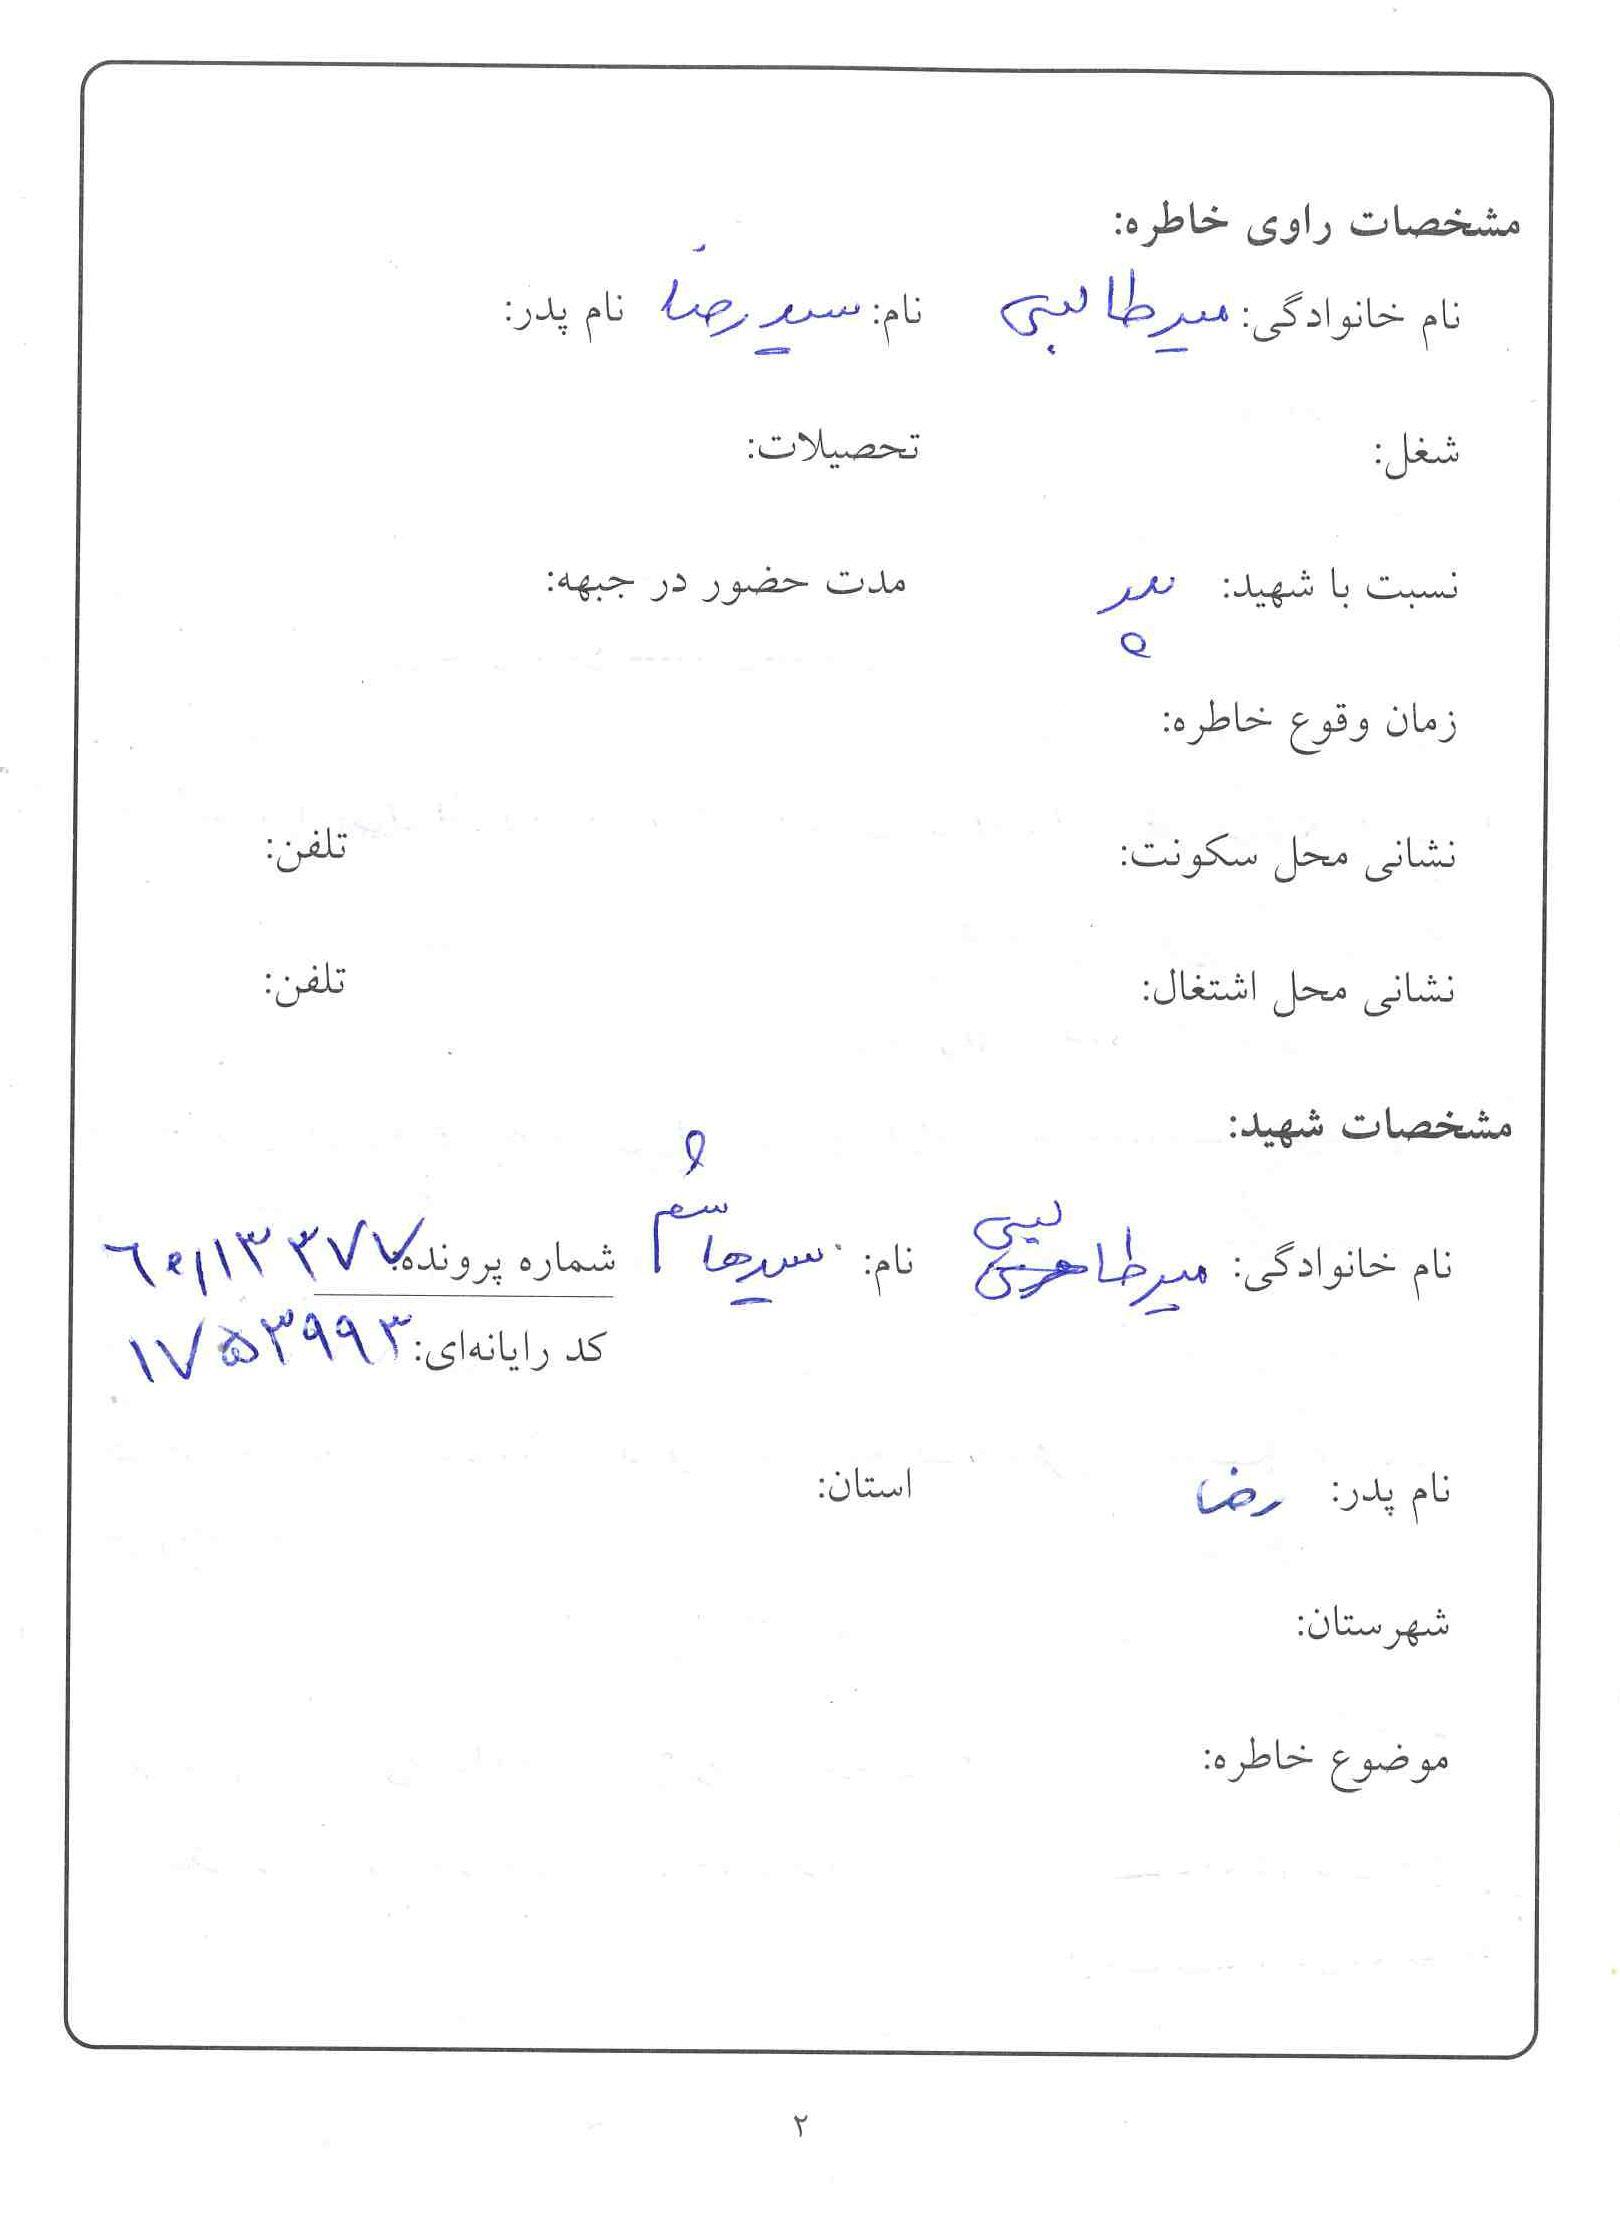 مشخصات راوی خاطره:
نام خانوادگی: میرطالبی نام: سید رضا نام پدر:
شغل: تحصیلات:
نسبت با شهید: پدر مدت حضور در جبهه:
زمان وقوع خاطره:
نشانی محل سکونت: تلفن:
نشانی محل اشتغال: تلفن:
مشخصات شهید:
نام خانوادگی: میرطالبی نام: سید هاشم شماره پرونده:
کد رایانه‌ای: ۱۷۵۳۹۹۳
نام پدر: رضا استان:
شهرستان:
موضوع خاطره:
۲